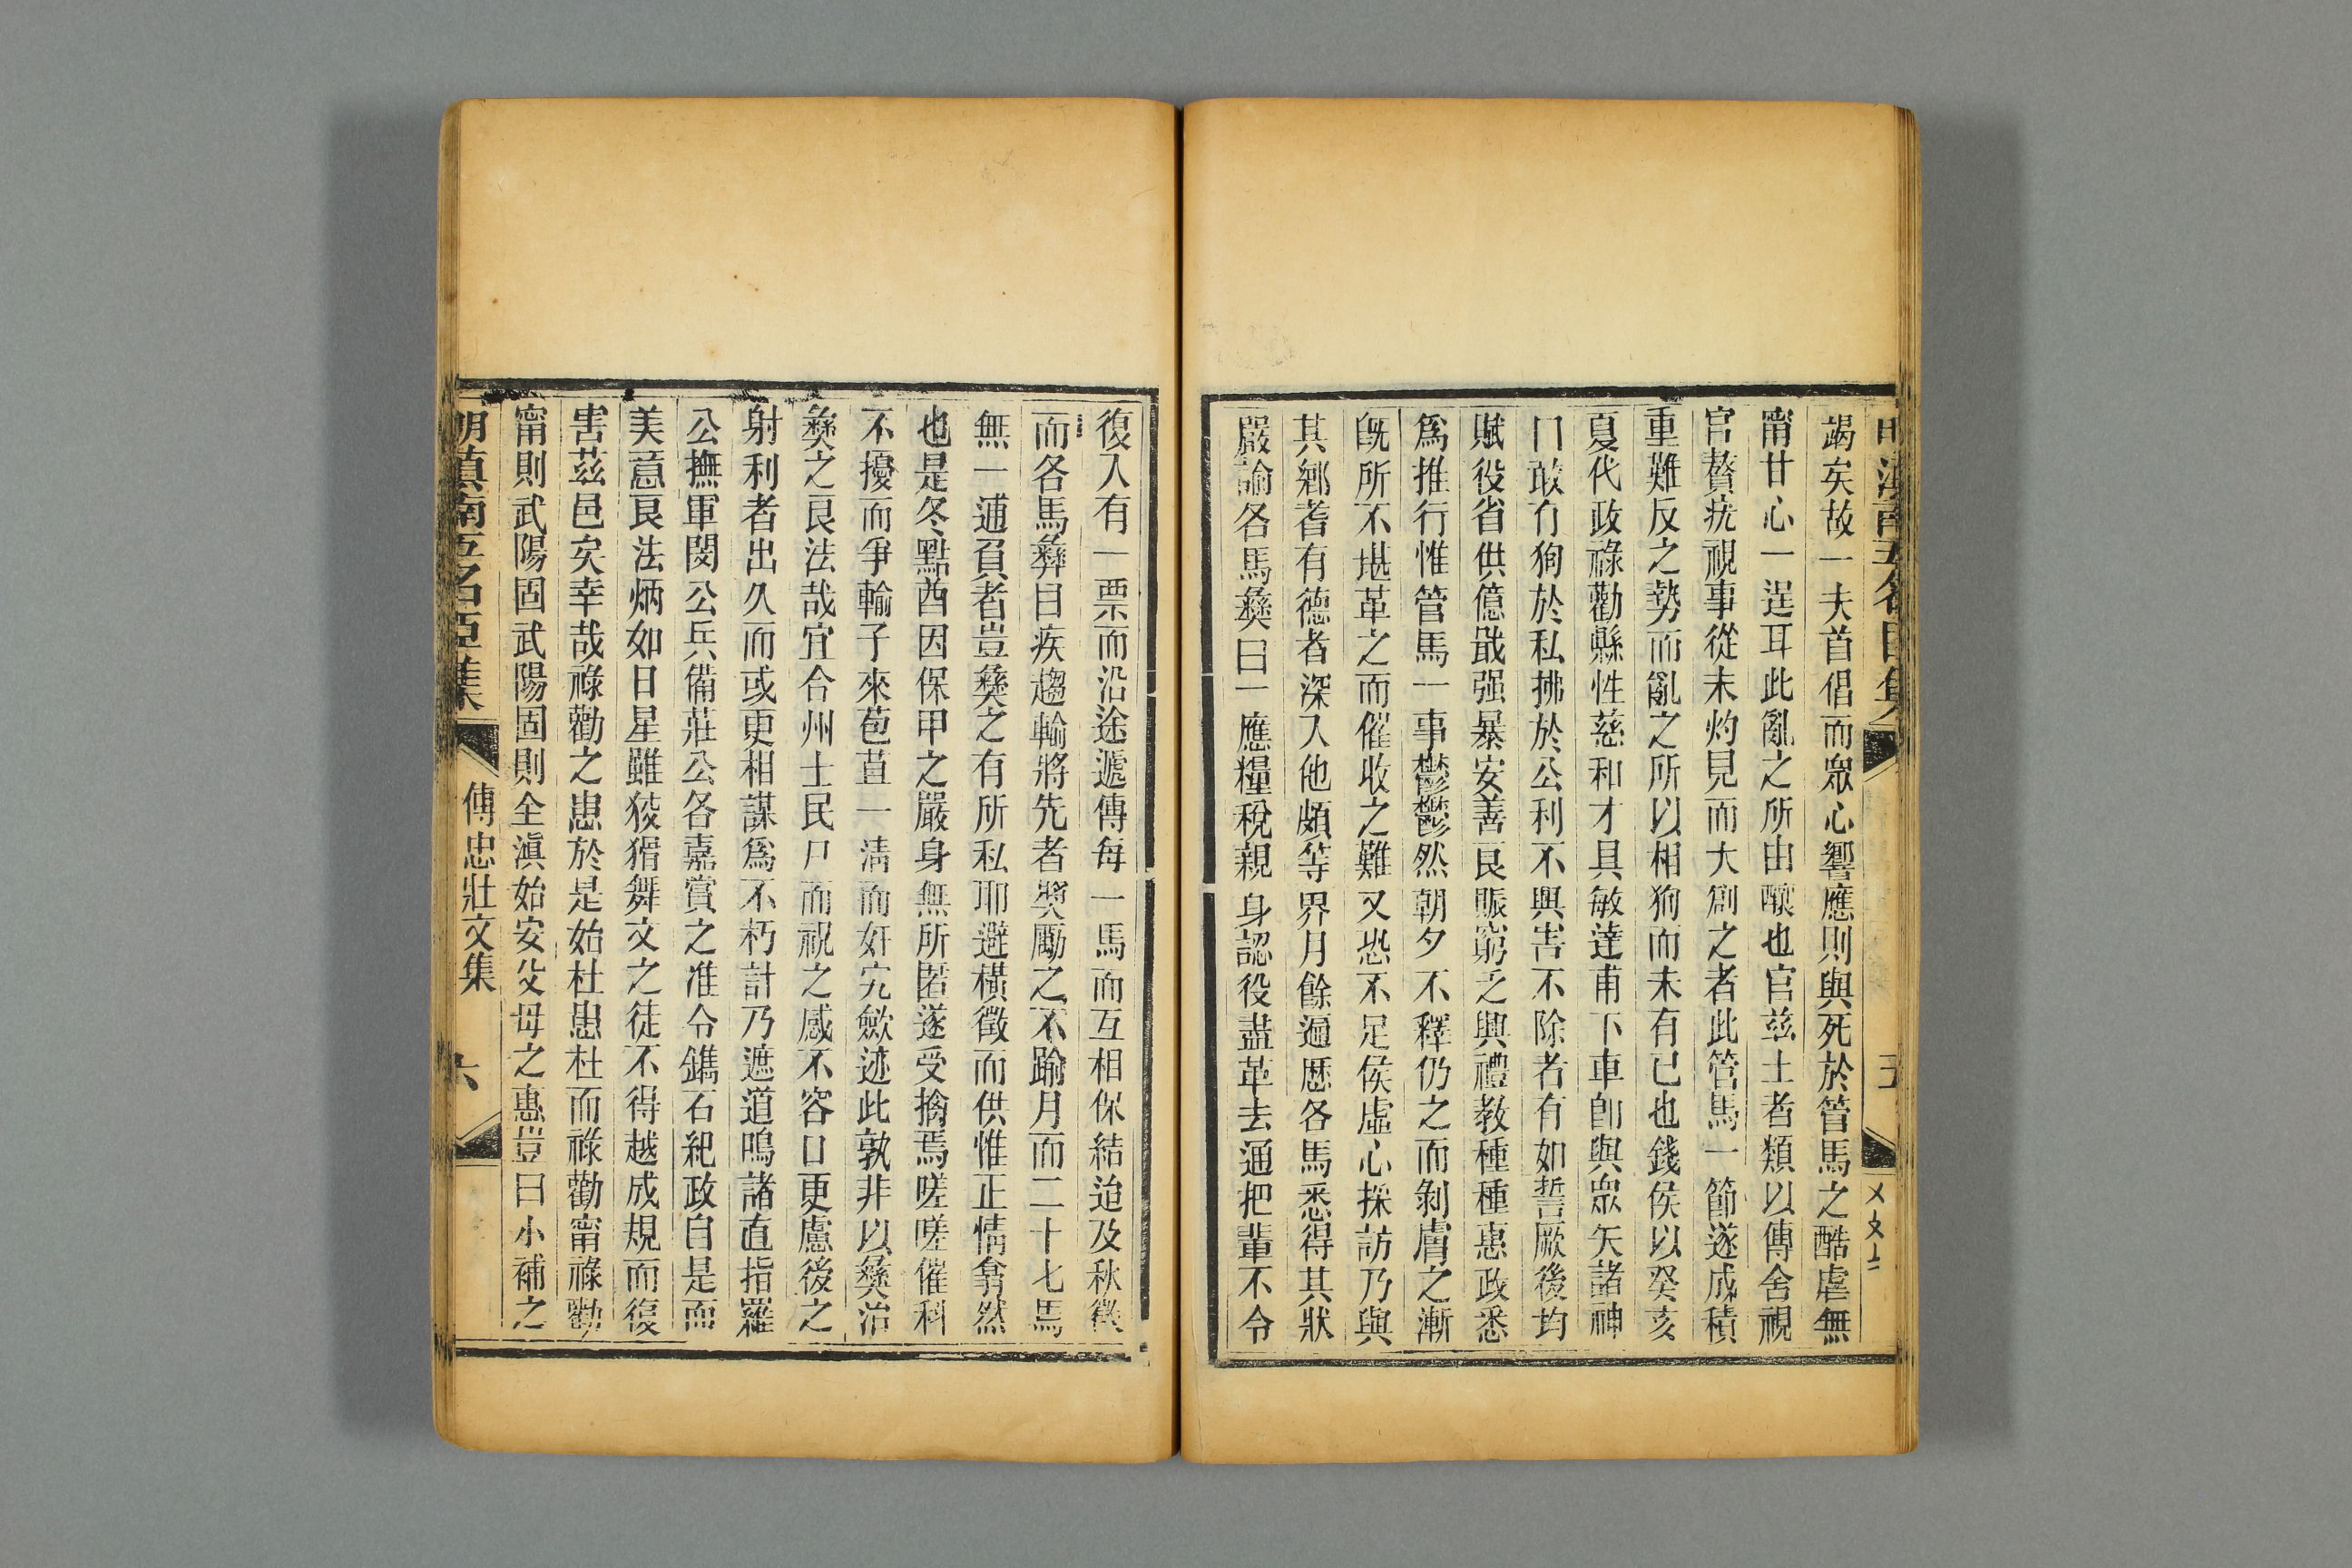 竭矣故一夫首倡而眾心響應則與死於管馬之酷虐無
甯甘心一逞耳此亂之所由釀也官茲土者類以傳舍視
官贅疣視事從未灼見而大創之者此管馬一節遂成積
重難反之勢而亂之所以相狥而未有已也錢侯以癸亥
夏代政祿勸縣性慈和才具敏達甫下車卽與眾矢諸神
曰敢有狥於私拂於公利不興害不除者有如誓厥後均
賦役省供億戢强暴安善良賑窮乏興禮教種種惠政悉
爲推行惟管馬一事鬱鬱然朝夕不釋仍之而剝膚之漸
旣所不堪革之而催收之難又恐不足侯虛心採訪乃與
其鄉耆有德者深入他頗等界月餘遍歷各馬悉得其狀
嚴諭各馬彝曰一應糧稅親身認役盡革去通把輩不令
復入有一票而沿途遞傳每一馬而互相保結迨及秋徵
而各馬彝目疾趨輸將先者獎勵之不踰月而二十七馬
無一逋負者豈彝之有所私耶避橫徵而供惟正情翕然
也是冬點酋因保甲之嚴身無所匿遂受擒焉嗟嗟催科
不擾而爭輸子來苞苴一清而奸宄歛迹此孰非以彝治
彝之良法哉宜合州士民尸而祝之感不容口更慮後之
射利者出久而或更相謀爲不朽計乃遮道鳴諸直指羅
公撫軍閔公兵備莊公各嘉賞之准令鐫石紀政自是而
美意良法炳如日星雖狡猾舞文之徒不得越成規而復
害茲邑矣幸哉祿勸之患於是始杜患杜而祿勸甯祿勸
甯則武陽固武陽固則全滇始安父母之惠豈曰小補之
明滇南五名臣集
傅忠壯文集
六